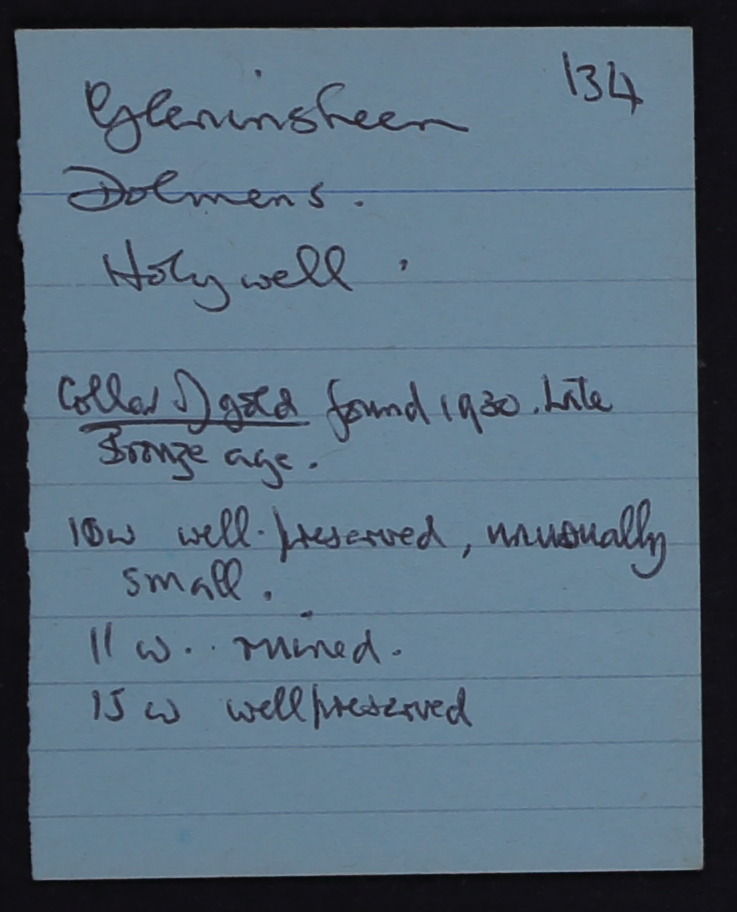 134
Gleninsheen
Dolmens.
Holy well.
Collar of gold found 1930. Late
Bronze age.
10w well-preserved, unusually
small.
11 w.. ruined.
15 w wellpreserved